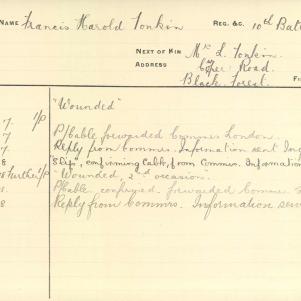 NAME Francis Harold Tonkin REG. &C. 10th Batt
NEXT OF KIN Mrs L Tonkin
ADDRESS Road
Black Forest
"Wounded"
7. 1/p
7 P/Cable forwarded Commrs London.
7 Reply from Commrs. Information sent Inq
8 "Slip", confirming Cabl, from Commrs. Information
8 Further 1/p "Wounded, 2nd occasion"
8. P/Cable confirmed. forwarded Commrs
8 Reply from Commrs. Information sen